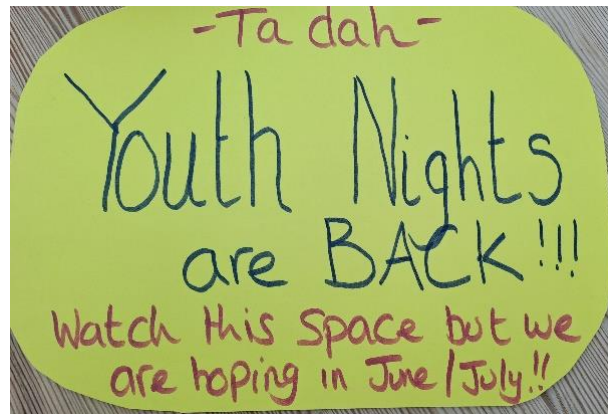 -Ta dah-
Youth Nights
are BACK!!!
Watch this space but we
are hoping in June/July!!